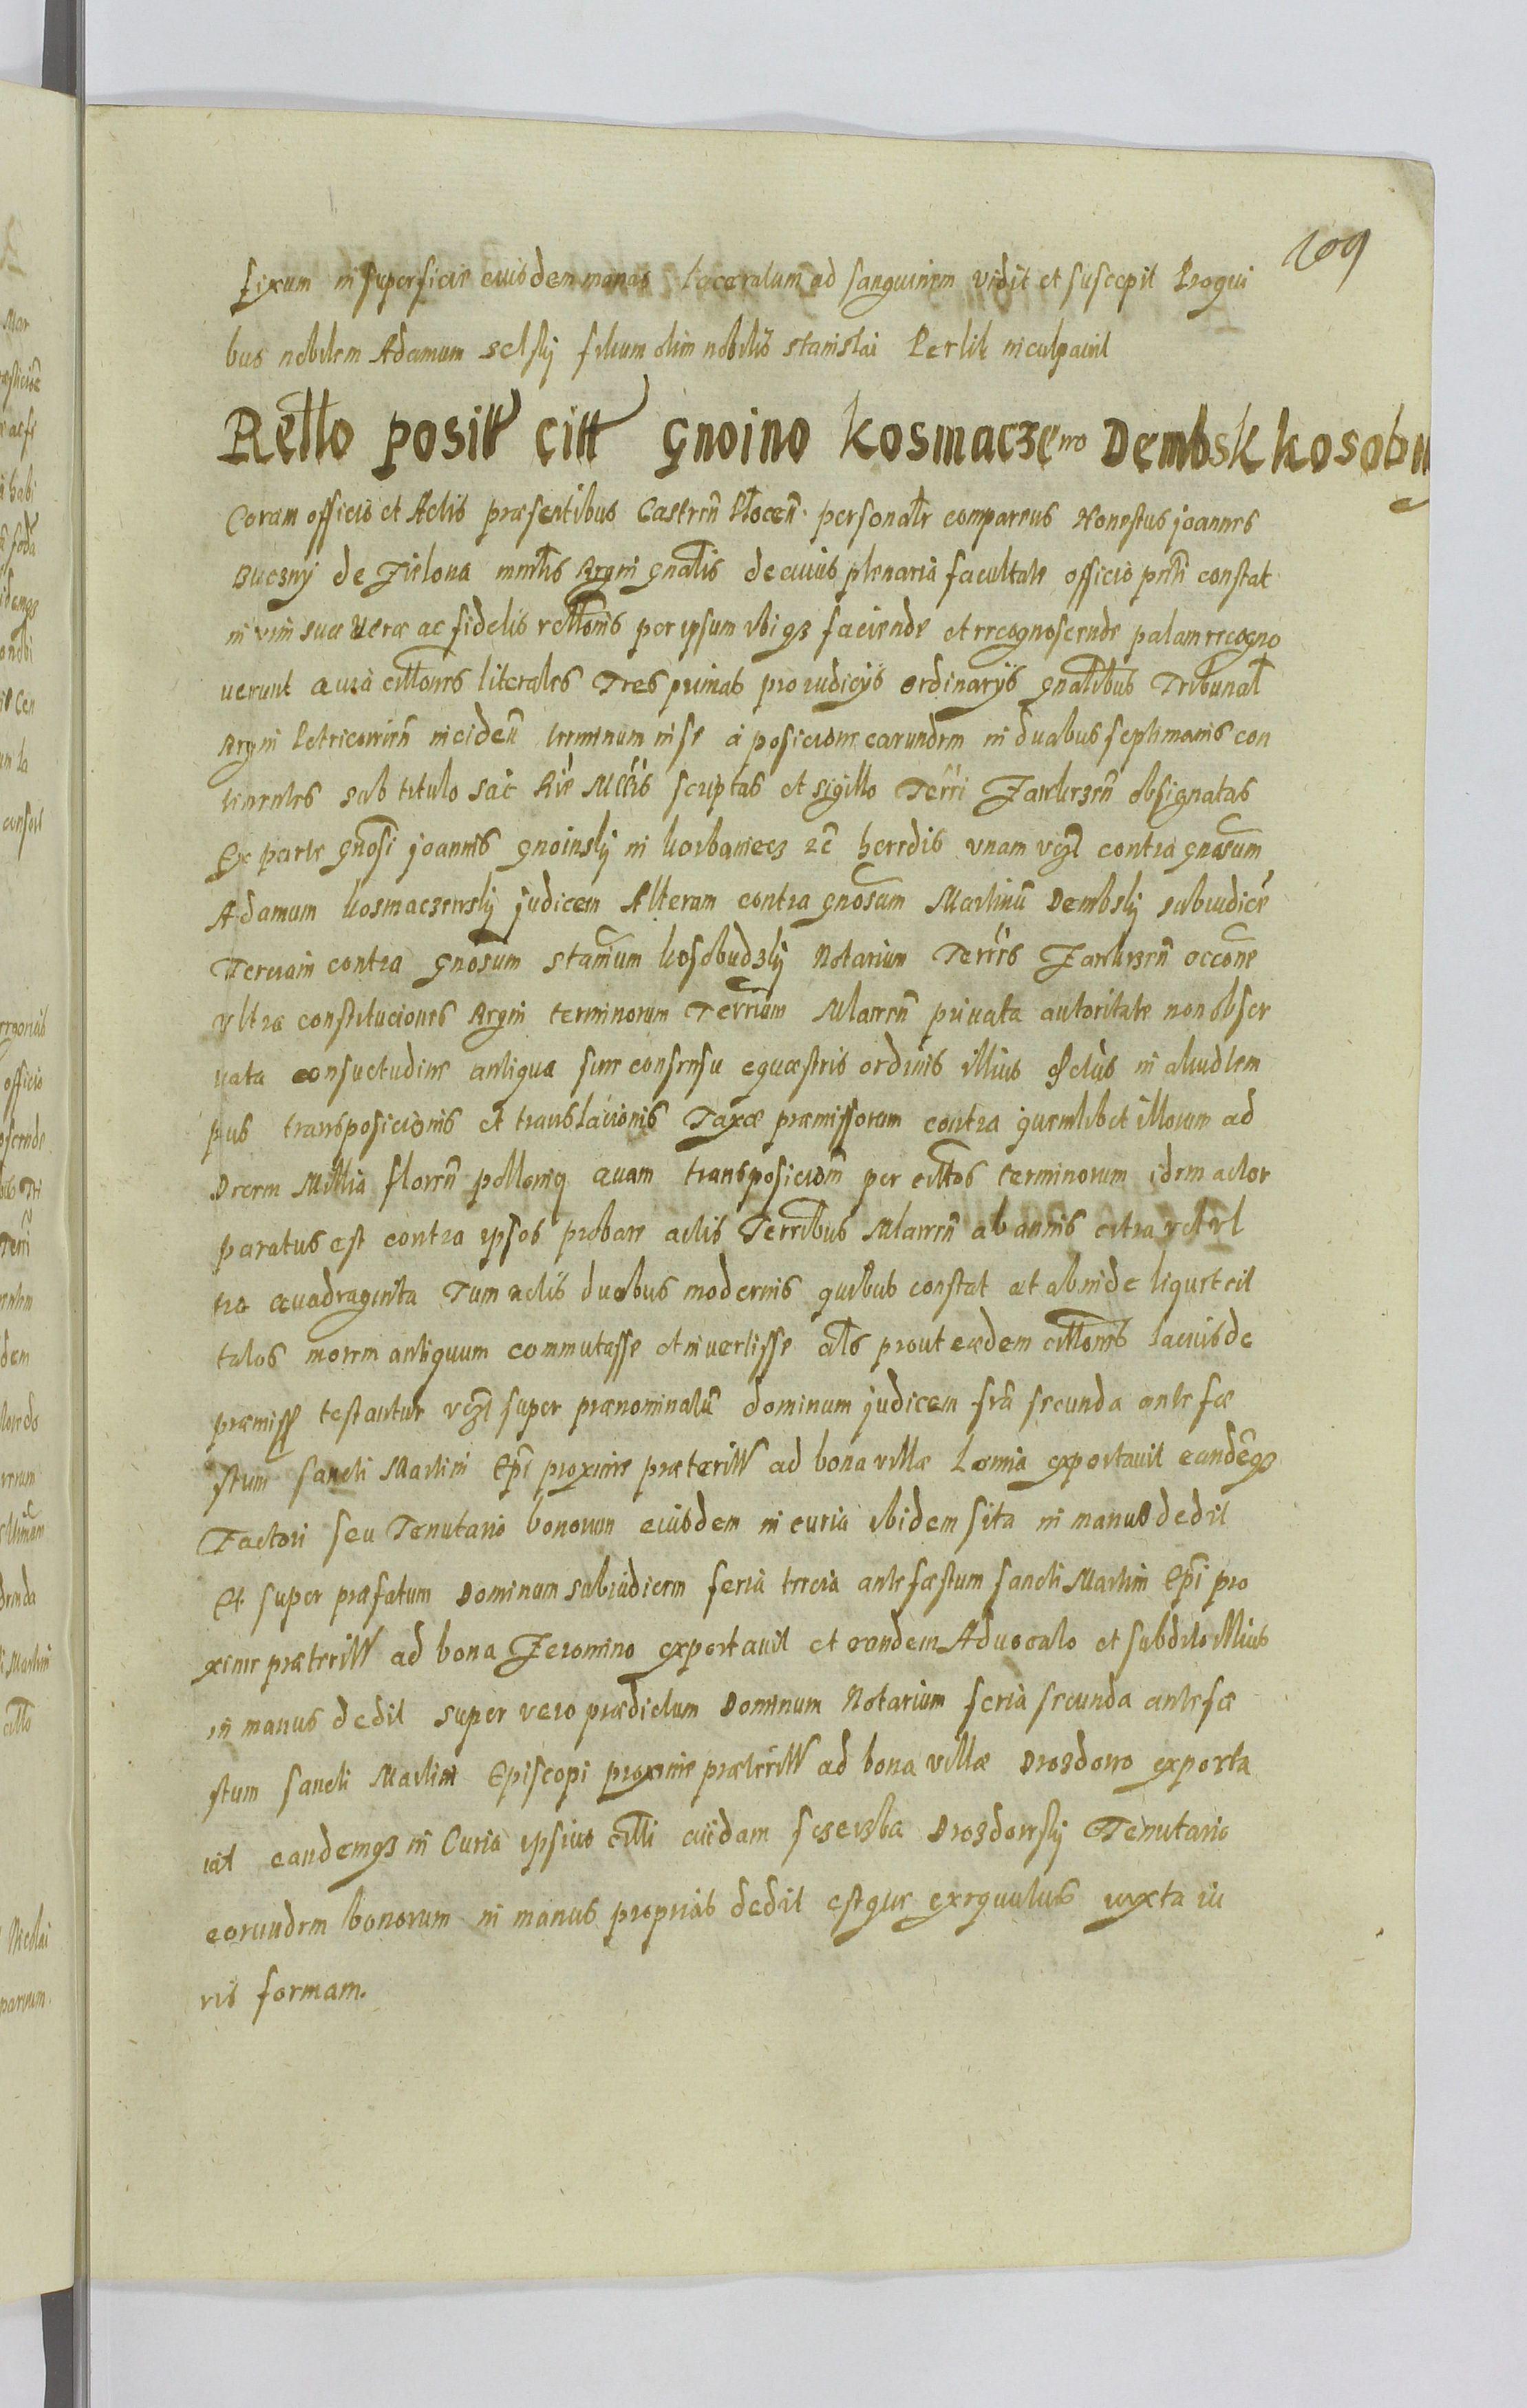 109
fixum in superficie eiusdem manas laceratum ad sanguinem vidit et suscepit Proqui
bus nobilem Adamum selskj filium olim nobilis stanislai Perlik inculpauit
Rello positt citt gnoino kosmaczewo Dembsk kosobu
Coram officio et Actis præsentibus Castren Plocen personalr comparens Honestus joannes
Buczny de Zielona mrlis Regni gnalis de cuius plenaria facultate officio pnti constat
in vim suæ veræ ac fidelis rellonis per ipsum vbi qz faciende et recognoscende palam recogno
uerunt quia cittones literales Tres primas pro iudicijs ordinarijs gnalibus Tribunal
Regni Petricouien inciden terminum in se a posicione earundem in duabus septimanis con
tinentes sub titulo sac Rie Mttis scriptas et sigillo Terri Zawkrzen obsignatas
Ex parte gnosi joannis gnoinskj in korbaniecz zc heredis vnam vczl contra gnosum
Adamum kosmaczewskj judicem Alteram contra gnosum Martinu Dembskj subiudice
Terciam contra gnosum stanium kosobudzkj Notarium Terris Zawkrzen occone
vltra constituciones Regni terminorum Terrium Mlawen priuata autoritate non obser
uata consuetudine antiqua sine consensu equæstris ordinis illius dictus in aliud tem
pus transposicionis et translacionis Taxæ præmissorum contra quemlibet illorum ad
Decem Millia floren pollonicz quam transposicion per cittos terminorum idem actor
paratus est contra ipsos probare actis Terribus Mlawen ab annis citra vel vl
tra quadraginta Tum actis duobus modernis quibus constat et abinde liquet cit
tatos morem antiquum commutasse et inuertisse als prout eædem cittonis lacius de
præmiss testantur vczl super prænominatu dominum judicem fra secunda ante fæ
stum sancti Martini Epi proxime præteritt ad bona villæ Lomia exportauit eandeqz
Factori seu Tenutario bonorum eiusdem in curia ibidem sita in manus dedit
Et super præfatum Dominum subiudicem feria tercia ante fæstum sancti Martini Epi pro
xime præteritt ad bona Zeromino exportauit et eandem Aduocato et subdito illius
in manus dedit super vero prædictum Dominum Notarium feria secunda ante fæ
stum sancti Martini Episcopi proxime præteritt ad bona villæ Drozdowo exporta
uit eandemqz in Curia ipsius citti cuidam sczerzba Drozdowskj Tenutario
eorundem bonorum in manus proprias dedit estque exequutus iuxta iu
ris formam.